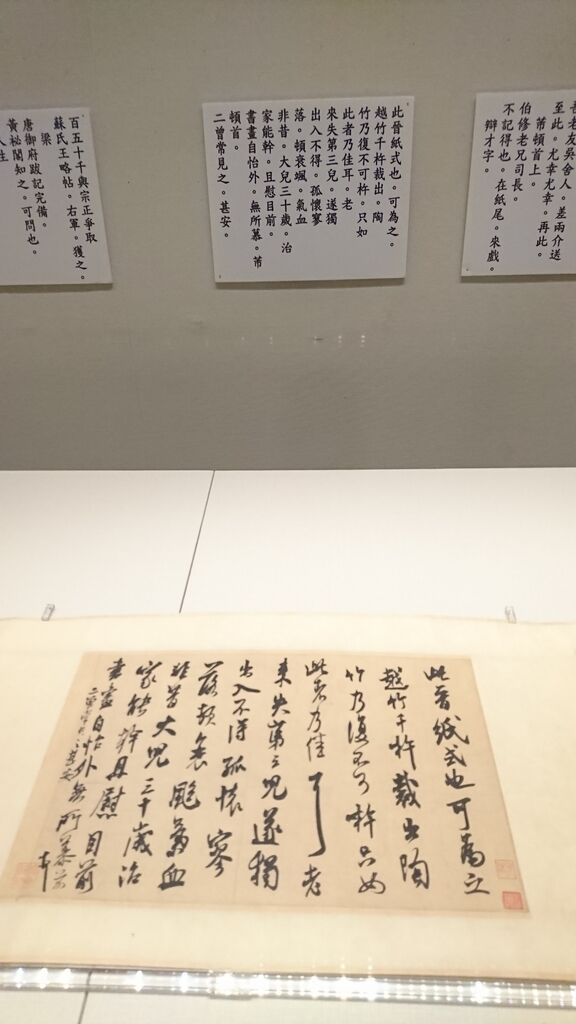 吾老友吳舍人。差兩介送
至此。尤幸尤幸。再此。
芾頓首上。
伯修老兄司長。
不記得也。在紙尾。來戲。
辯才字。
此晉紙式也。可為之。
越竹千杵裁出。陶
竹乃復不可杵。只如
此者乃佳耳。老
來失第三兒。遂獨
出入不得。孤懷寥
落。頓衰颯。氣血
非昔。大兒三十歲。治
家能幹。且慰目前。
書畫自怡外。無所慕。芾
頓首。
二曾常見之。甚安。
百五十千與宗正爭取
蘇氏王略帖。右軍。獲之。
梁
唐御府跋記完備。
黃秘閣知之。可問也。
人生
此晉紙式也可為之
越竹千杵裁出陶
竹乃復不可杵只如
此者乃佳耳老
來失第三兒遂獨
出入不得孤懷寥
落頓衰颯氣血
非昔大兒三十歲治
家能幹且慰目前
書畫自怡外無所慕芾
頓首
二曾常見之甚安